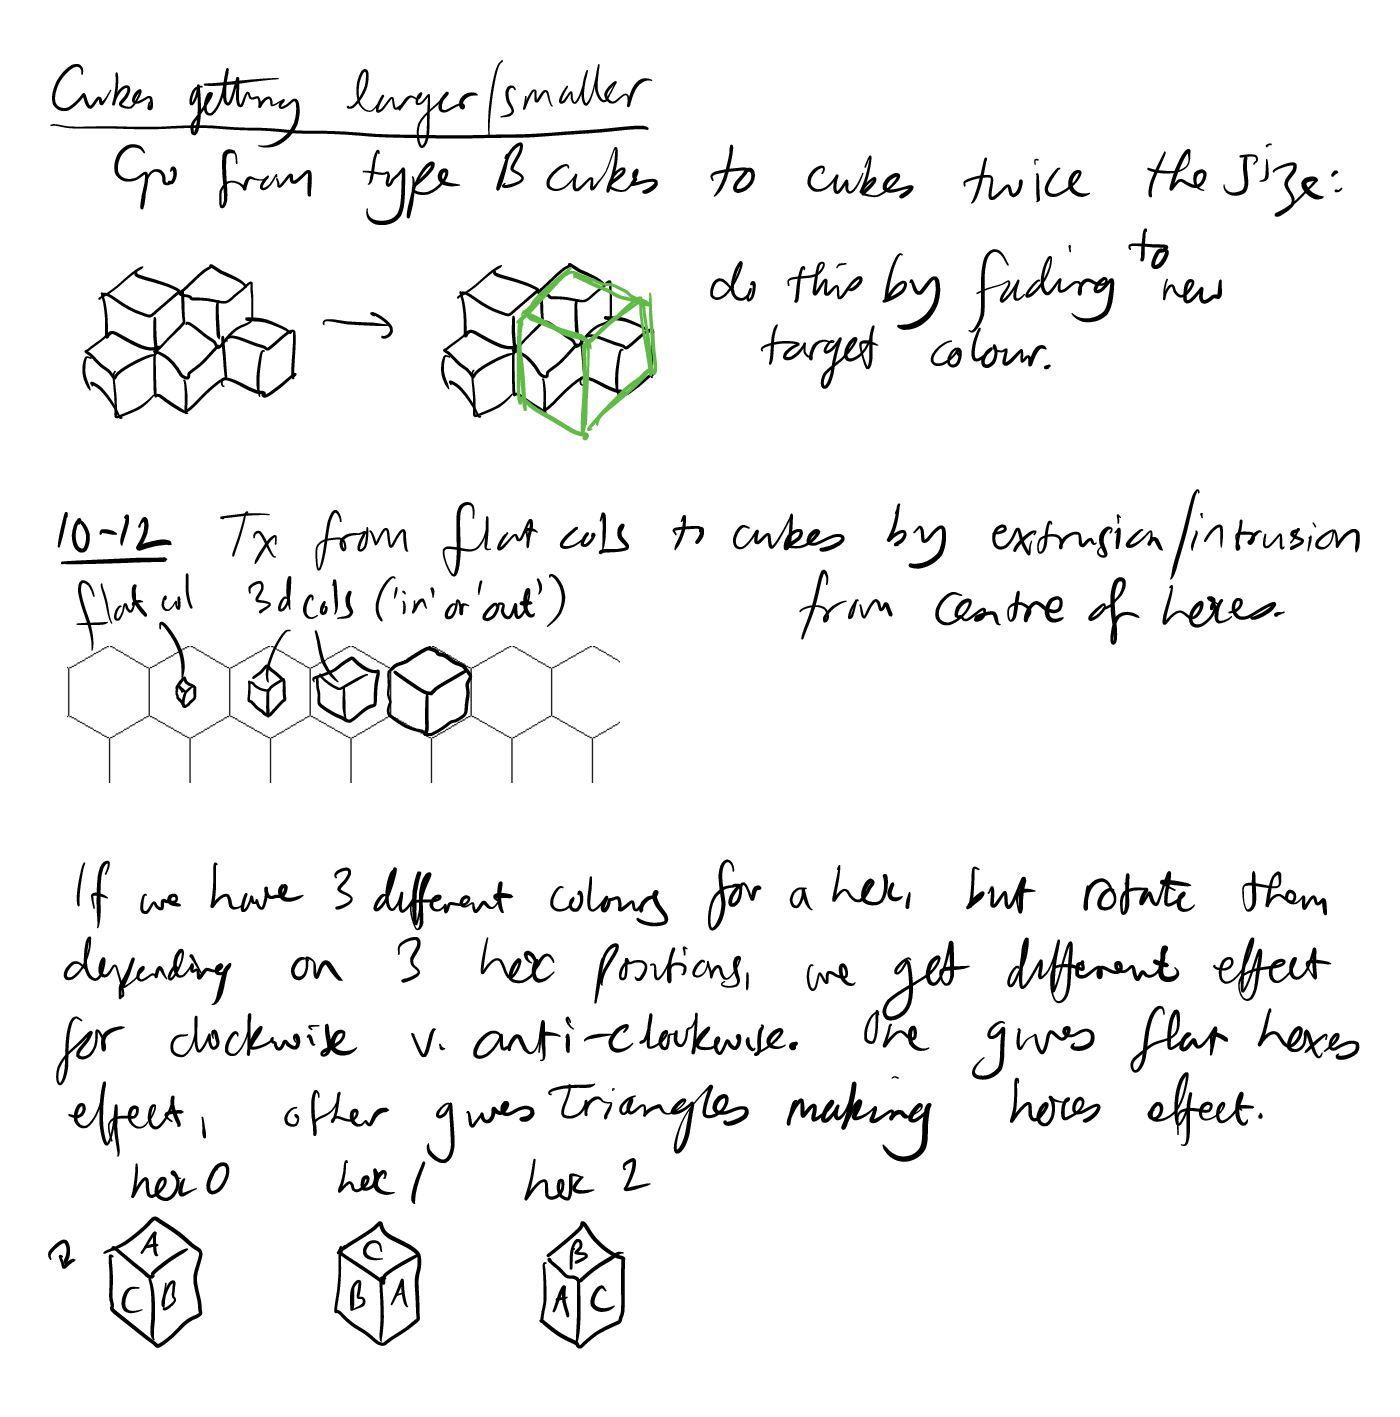 Cubes getting larger/smaller
Go from type B cubes to cubes twice the size:
do this by fading to new
target colour.
10-12 Tx from flat cols to cubes by extrusion/intrusion
from centre of hexes.
flat col 3d cols ('in' or 'out')
If we have 3 different colours for a hex, but rotate them
depending on 3 hex positions, we get different effect
for clockwise v. anti-clockwise. One gives flat hexes
effect, other gives triangles making hexes effect.
hex 0 hex 1 hex 2
A C B
C B B A A C